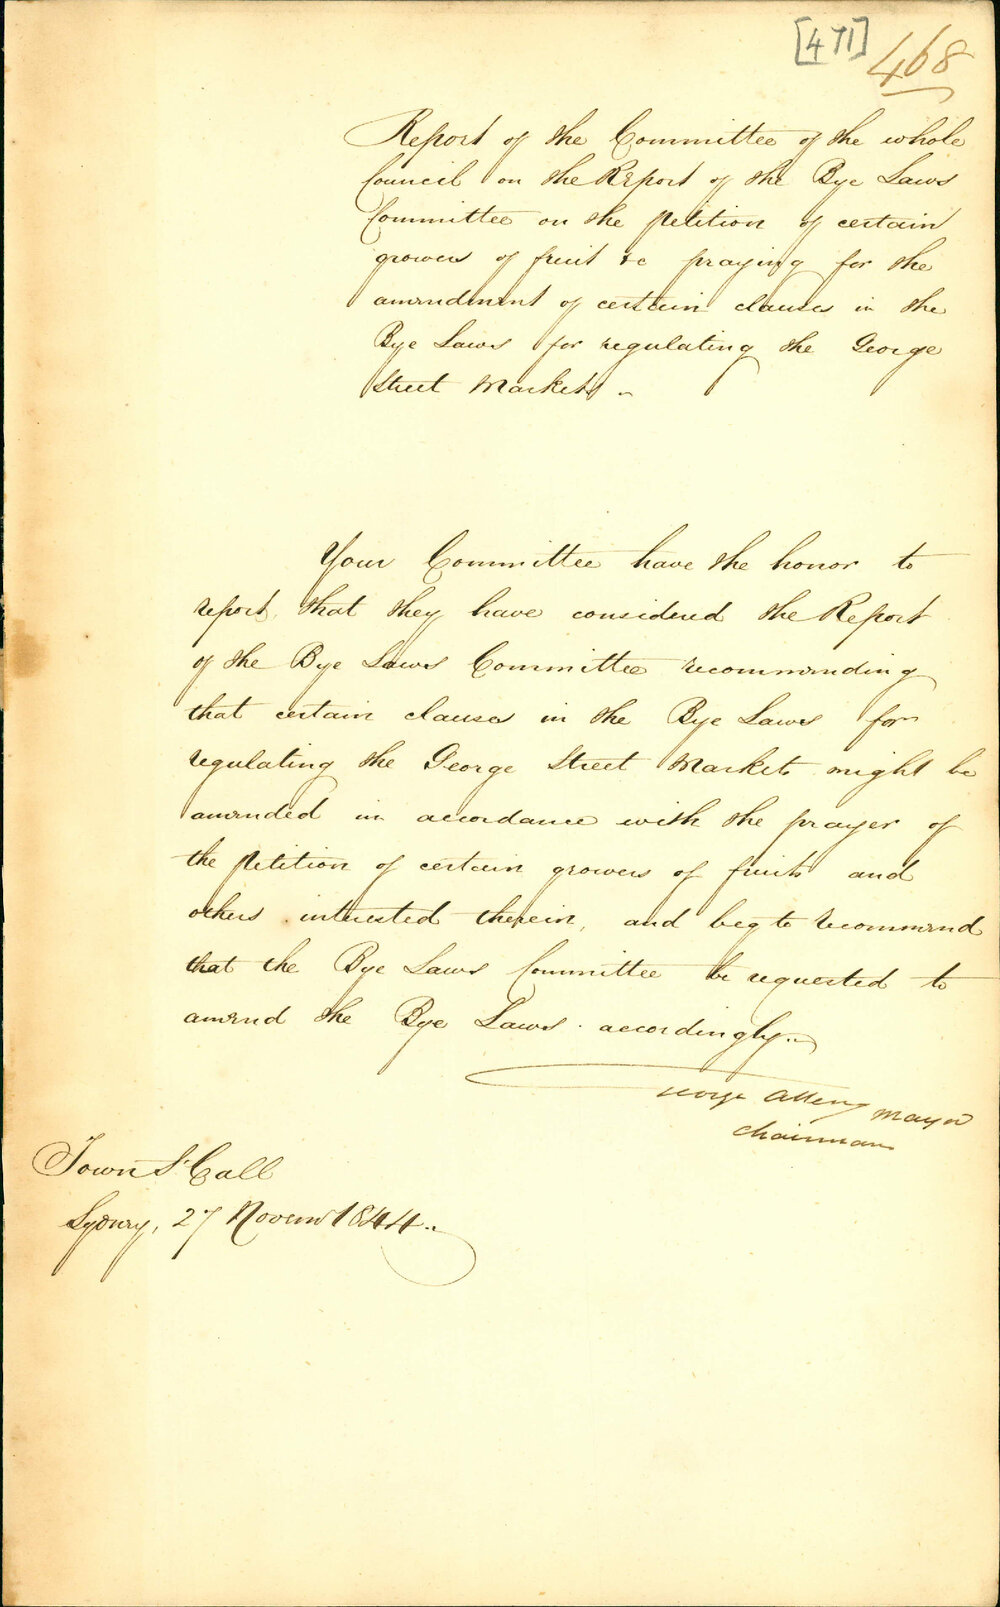 [471] 468
Report of the Committee of the whole
Council on the Report of the Bye Laws
Committee on the petition of certain
growers of fruit &c praying for the
amendment of certain clauses in the
Bye Laws for regulating the George
Street Markets.
Your Committee have the honor to
report, that they have considered the Report
of the Bye Laws Committee recommending
that certain clauses in the Bye Laws for
regulating the George Street Markets might be
amended in accordance with the prayer of
the petition of certain growers of fruits and
others interested therein, and beg to recommend
that the Bye Laws Committee be requested to
amend the Bye Laws accordingly.
George Allen Mayor
Chairman
Town Hall
Sydney, 27 Novem 1844.